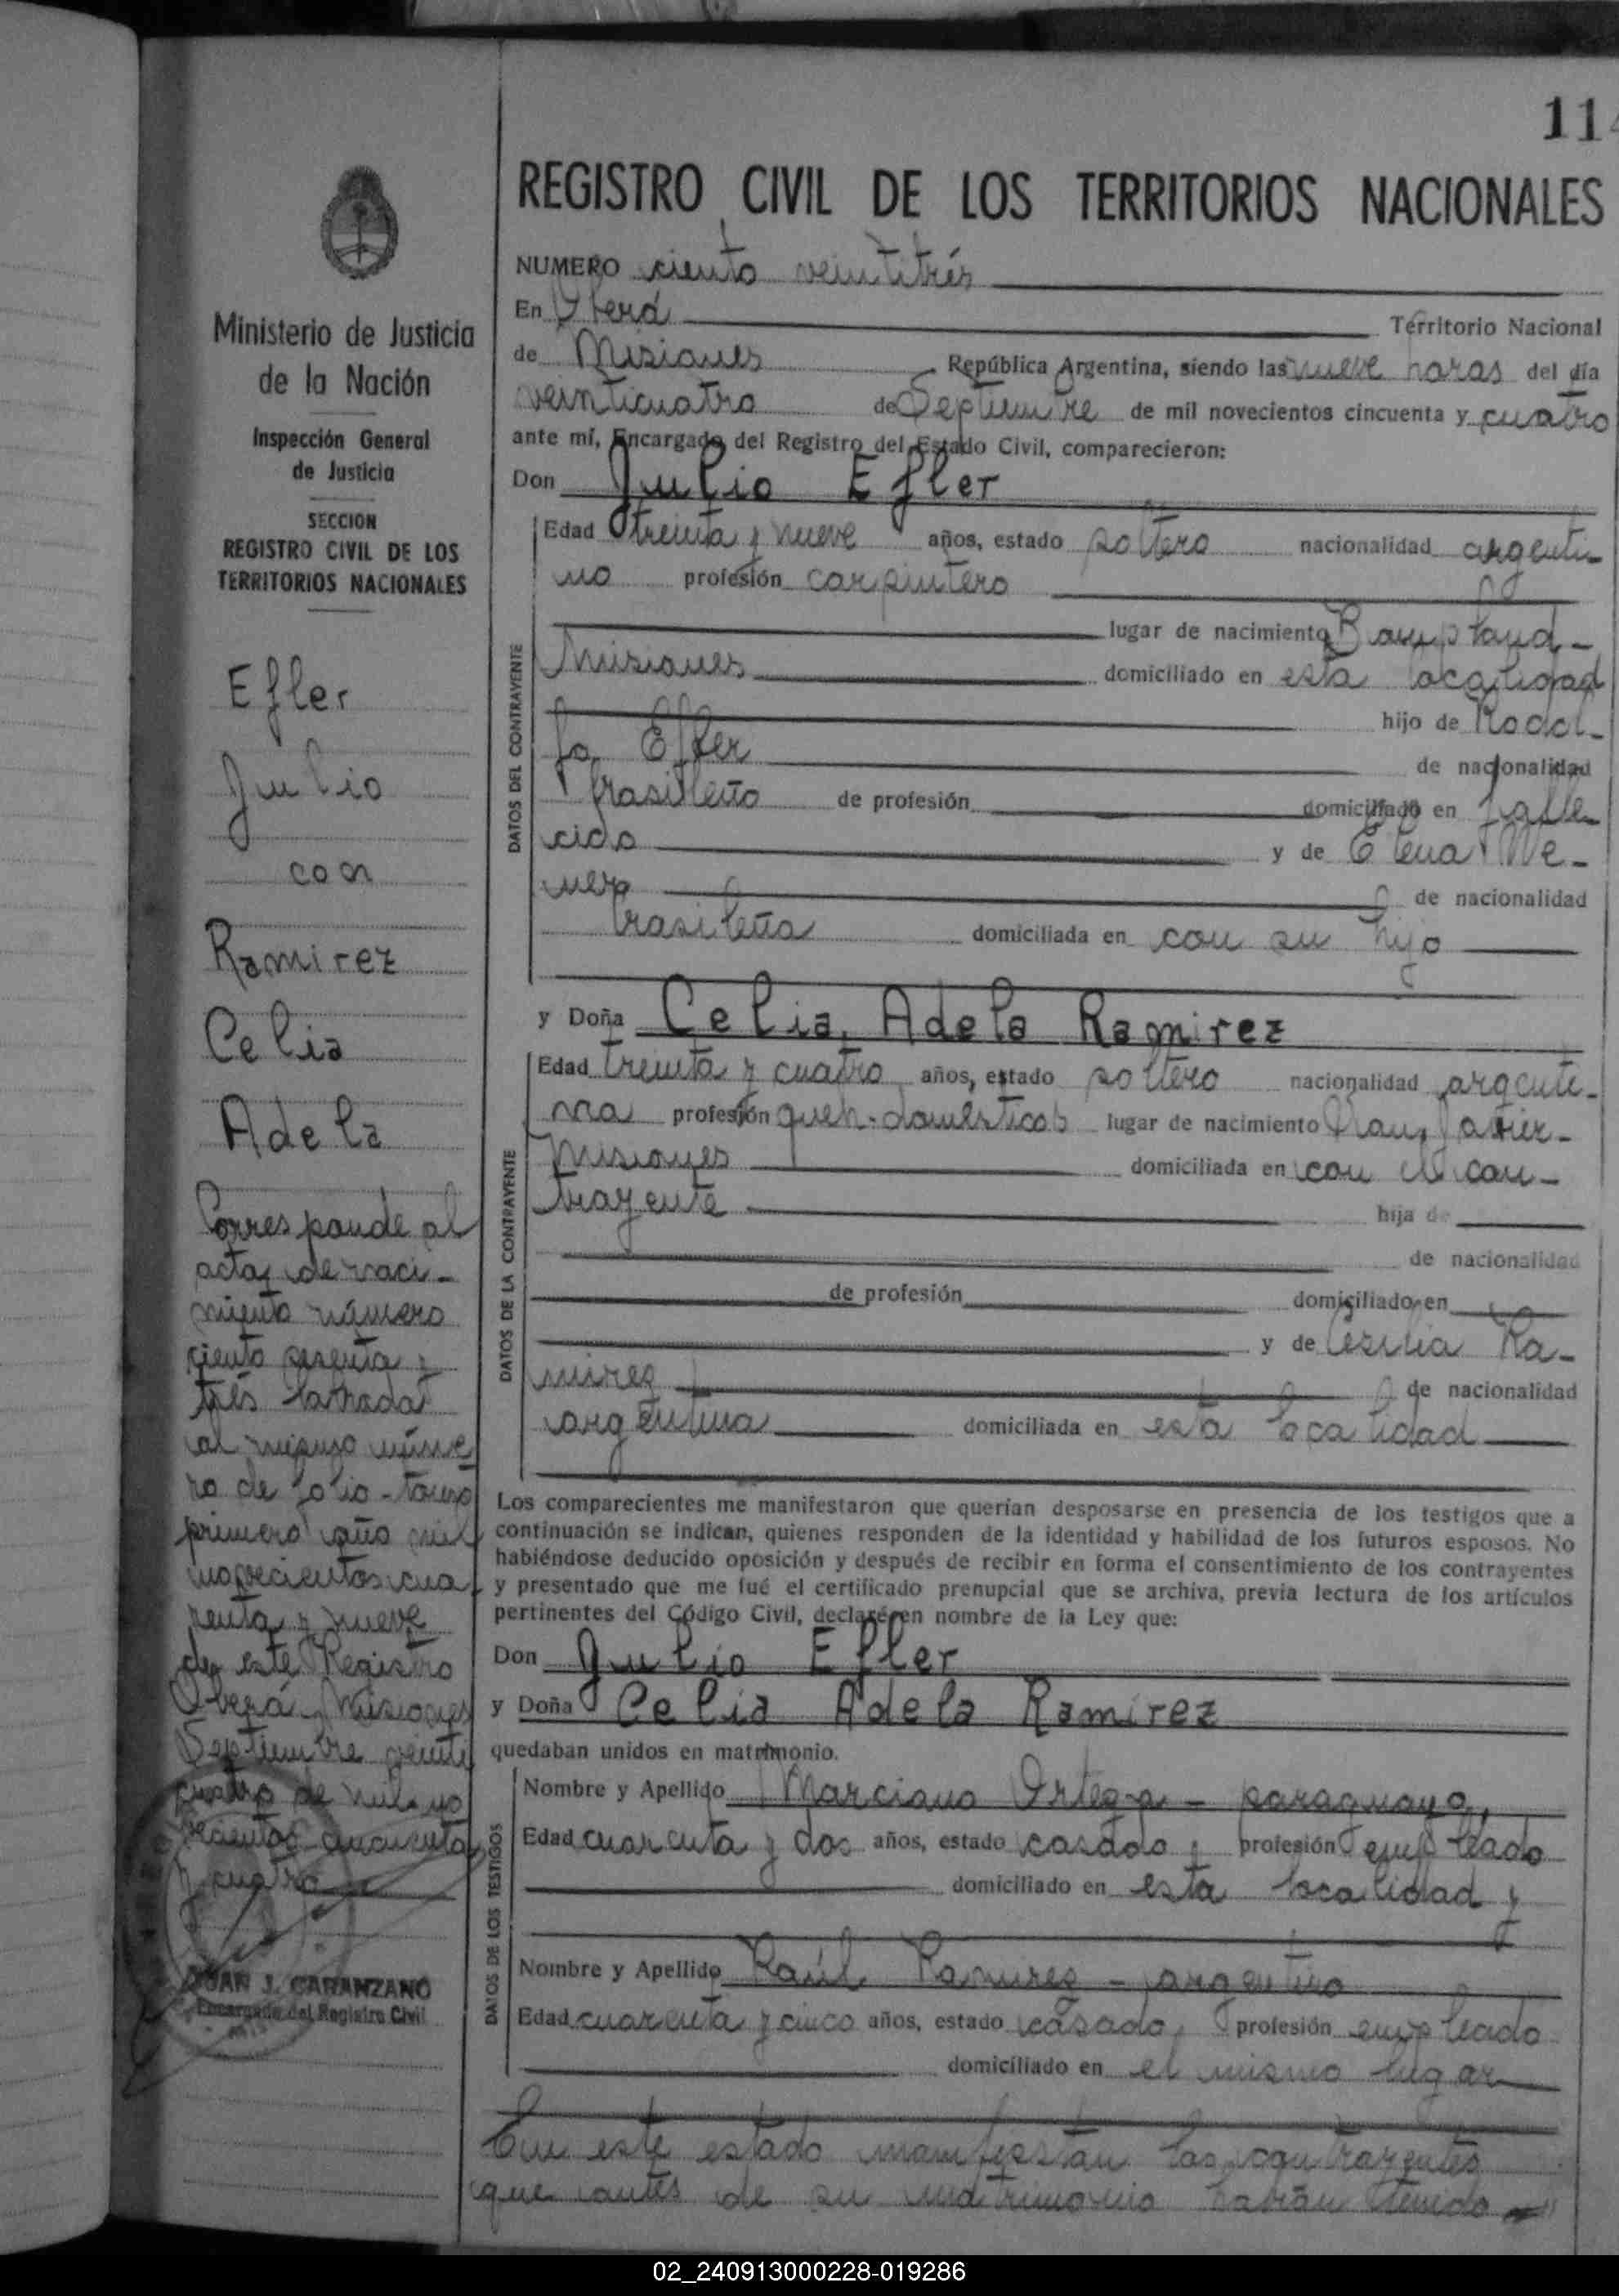 114
REGISTRO CIVIL DE LOS TERRITORIOS NACIONALES
NUMERO ciento veintitrés
En Oberá Territorio Nacional
de Misiones República Argentina, siendo las nueve horas del día
veinticuatro de Septiembre de mil novecientos cincuenta y cuatro
ante mí, Encargado del Registro del Estado Civil, comparecieron:
Don Julio Efler
DATOS DEL CONTRAYENTE
Edad treinta y nueve años, estado soltero nacionalidad argenti
no profesión carpintero
lugar de nacimiento Bompland-
Misiones domiciliado en esta localidad
hijo de Rodol-
fo Efler de nacionalidad
brasileño de profesión domiciliado en falle
cido y de Elena We-
ner de nacionalidad
brasileña domiciliada en con su hijo
y Doña Celia Adela Ramirez
DATOS DE LA CONTRAYENTE
Edad treinta y cuatro años, estado soltero nacionalidad argenti-
na profesión queh-domésticos lugar de nacimiento Javier-
Misiones domiciliada en con el con-
trayente hija de
de nacionalidad
de profesión domiciliado en
y de Cesilia Ra-
mirez de nacionalidad
argentina domiciliada en esta localidad
Los comparecientes me manifestaron que querían desposarse en presencia de los testigos que a
continuación se indican, quienes responden de la identidad y habilidad de los futuros esposos. No
habiéndose deducido oposición y después de recibir en forma el consentimiento de los contrayentes
y presentado que me fué el certificado prenupcial que se archiva, previa lectura de los artículos
pertinentes del Código Civil, declaré en nombre de la Ley que:
Don Julio Efler
y Doña Celia Adela Ramirez
quedaban unidos en matrimonio.
DATOS DE LOS TESTIGOS
Nombre y Apellido Marciano Ortega - paraguayo,
Edad cuarenta y dos años, estado casado, profesión empleado
domiciliado en esta localidad y
Nombre y Apellido Raúl Ramirez - argentino
Edad cuarenta y cinco años, estado casado, profesión empleado
domiciliado en el mismo lugar
En este estado manifiestan los contrayentes
que antes de su matrimonio habían tenido
Ministerio de Justicia
de la Nación
Inspección General
de Justicia
SECCION
REGISTRO CIVIL DE LOS
TERRITORIOS NACIONALES
Efler
Julio
con
Ramirez
Celia
Adela
Corresponde al
acta de naci-
miento número
ciento sesenta y
trés labrada
al mismo núme
ro de folio-tomo
primero año mil
novecientos cua
renta y nueve
de este Registro
Oberá, Misiones
Septiembre veinti
cuatro de mil no
vecientos cincuenta
y cuatro
JUAN J. CARANZANO
Encargado del Registro Civil
02_240913000228-019286